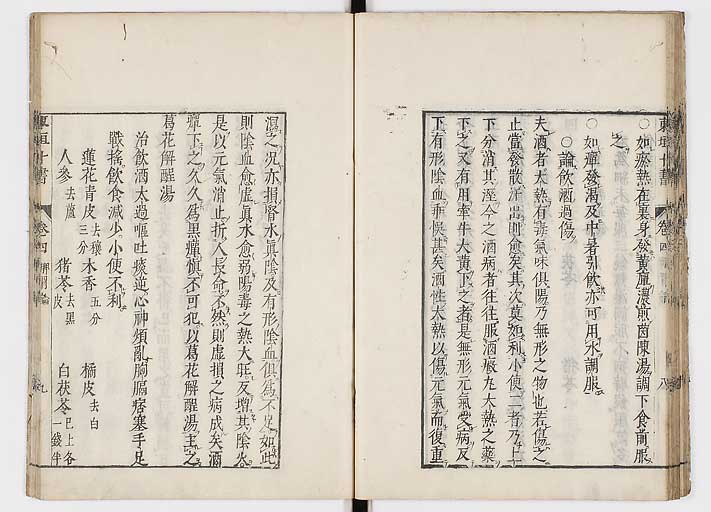 ○如瘀熱在裏身發黃疸濃煎茵陳湯調下食前服
之
○如癉發渴及中暑引飲亦可用水調服
○論飲酒過傷
夫酒者大熱有毒氣味俱陽乃無形之物也若傷之
止當發散汗出則愈矣其次莫如利小便二者乃上
下分消其溼今之酒病者往往服酒癥丸大熱之藥
下之又有用牽牛大黃下之者是無形元氣受病反
下有形陰血乖悞甚矣酒性大熱以傷元氣而復重
瀉之況亦損腎水真陰及有形陰血俱為不足如此
則陰血愈虛真水愈弱陽毒之熱大旺反增其陰火
是以元氣消止折人長命不然則虛損之病成矣酒
癉下之久久為黑癉慎不可犯以葛花解酲湯主之
葛花解酲湯
治飲酒太過嘔吐痰逆心神煩亂胸膈痞塞手足
戰搖飲食減少小便不利
蓮花青皮 去穰三分 木香 五分 橘皮 去白
人參 去蘆 猪苓 去黑皮 白茯苓 已上各一錢半
東垣十書 卷四 八
東垣十書 卷四 九